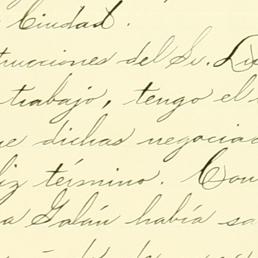 Ciudad.
trucciones del Sr. Di
trabajo, tengo el
ue dichas negociac
liz término. Con
a Galán había sa